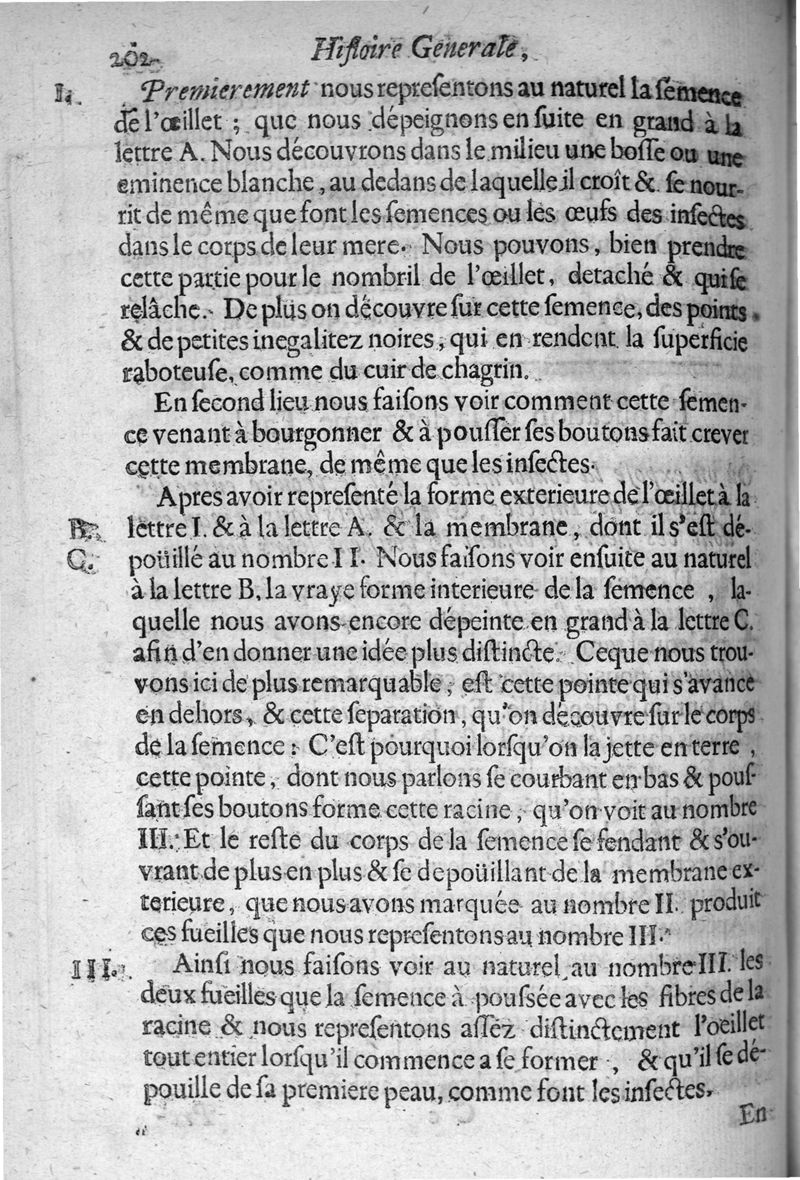 202
Hiſtoire Generale,
I. Premierement nous repreſentons au naturel la ſemence
de l'œillet ; que nous dépeignons en ſuite en grand à la
lettre A. Nous découvrons dans le milieu une boſſe ou une
eminence blanche, au dedans de laquelle il croît & ſe nour-
rit de même que font les ſemences ou les œufs des inſectes
dans le corps de leur mere. Nous pouvons, bien prendre
cette partie pour le nombril de l'œillet, detaché & qui ſe
relâche. De plus on découvre ſur cette ſemence, des points
& de petites inegalitez noires, qui en rendent la ſuperficie
raboteuſe, comme du cuir de chagrin.
En ſecond lieu nous faiſons voir comment cette ſemen-
ce venant à bourgonner & à pouſſer ſes boutons fait crever
cette membrane, de même que les inſectes.
Apres avoir repreſenté la forme exterieure de l'œillet à la
B. lettre I. & à la lettre A. & la membrane, dont il s'eſt dé-
C. poüillé au nombre II. Nous faiſons voir enſuite au naturel
à la lettre B, la vraye forme interieure de la ſemence , la-
quelle nous avons encore dépeinte en grand à la lettre C.
afin d'en donner une idée plus diſtincte. Ceque nous trou-
vons ici de plus remarquable, eſt cette pointe qui s'avance
en dehors, & cette ſeparation, qu'on découvre ſur le corps
de la ſemence : C'eſt pourquoi lorſqu'on la jette en terre ,
cette pointe, dont nous parlons ſe courbant en bas & pouſ-
ſant ſes boutons forme cette racine, qu'on voit au nombre
III. Et le reſte du corps de la ſemence ſe fendant & s'ou-
vrant de plus en plus & ſe depoüillant de la membrane ex-
terieure, que nous avons marquée au nombre II. produit
ces fueilles que nous repreſentons au nombre III.
III. Ainſi nous faiſons voir au naturel au nombre III. les
deux fueilles que la ſemence à pouſsée avec les fibres de la
racine & nous repreſentons aſſez diſtinctement l'oeillet
tout entier lorſqu'il commence a ſe former , & qu'il ſe dé-
pouille de ſa premiere peau, comme font les inſectes,
En